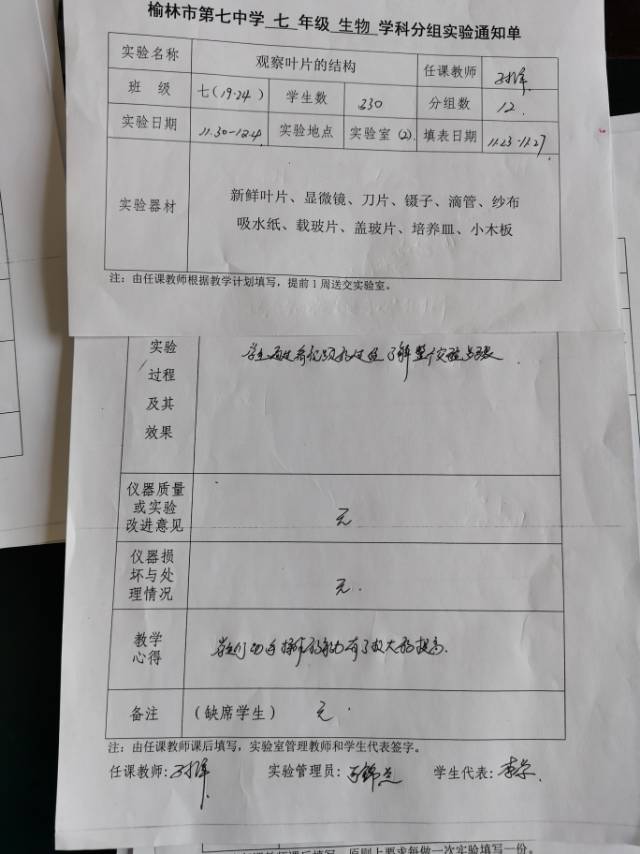 榆林市第七中学 七 年级 生物 学科分组实验通知单
实验名称 观察叶片的结构 任课教师
班 级 七(19-24) 学生数 230 分组数 12
实验日期 11.30-12.4 实验地点 实验室(2) 填表日期 11.23-11.27
实验器材 新鲜叶片、显微镜、刀片、镊子、滴管、纱布
吸水纸、载玻片、盖玻片、培养皿、小木板
注:由任课教师根据教学计划填写,提前1周送交实验室。
实验
过程
及其
效果
学生 了解整个实验步骤
仪器质量
或实验
改进意见
无
仪器损
坏与处
理情况
无.
教学
心得
学生们动手操作的能力有了较大的提高.
备注 (缺席学生) 无.
注:由任课教师课后填写,实验室管理教师和学生代表签字。
任课教师: 实验管理员: 学生代表:
任课教师课后填写,原则上要求每做一次实验填写一份。